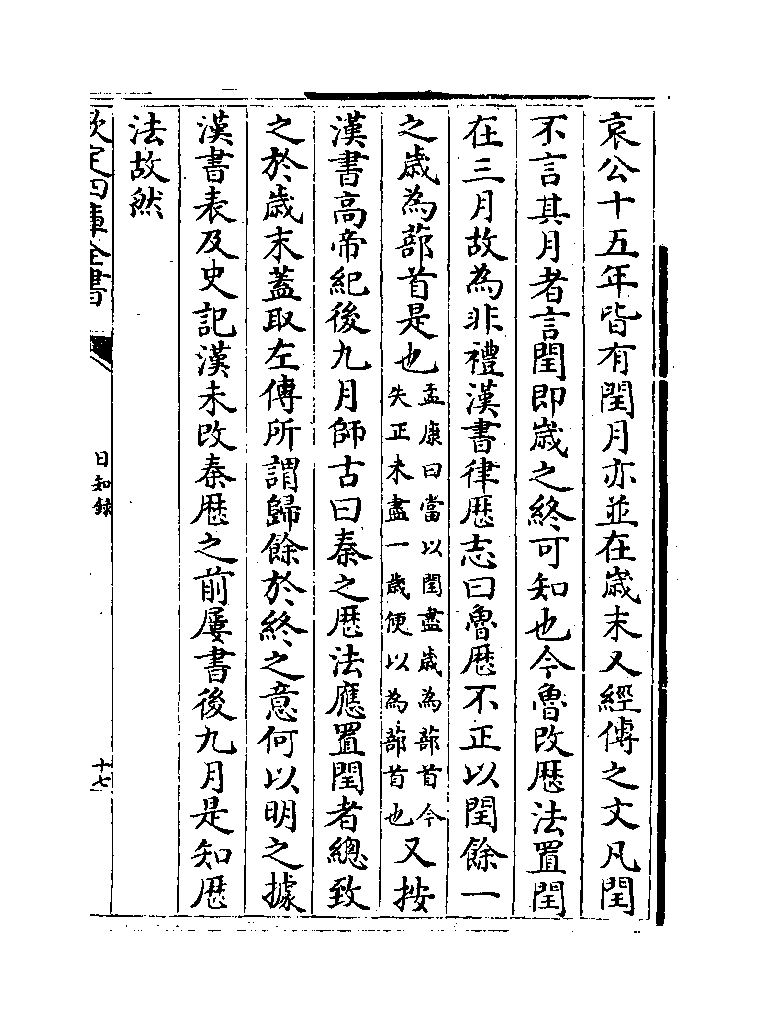 哀公十五年皆有閏月亦並在歲末又經傳之文凡閏
不言其月者言閏即歲之終可知也今魯改厯法置閏
在三月故為非禮漢書律厯志曰魯厯不正以閏餘一
之歲為蔀首是也孟康曰當以閏盡歲為蔀首今失正未盡一歲便以為蔀首也又按
漢書高帝紀後九月師古曰秦之厯法應置閏者總致
之於歲末蓋取左傳所謂歸餘於終之意何以明之據
漢書表及史記漢未改秦厯之前屢書後九月是知厯
法故然
欽定四庫全書
日知錄
十七